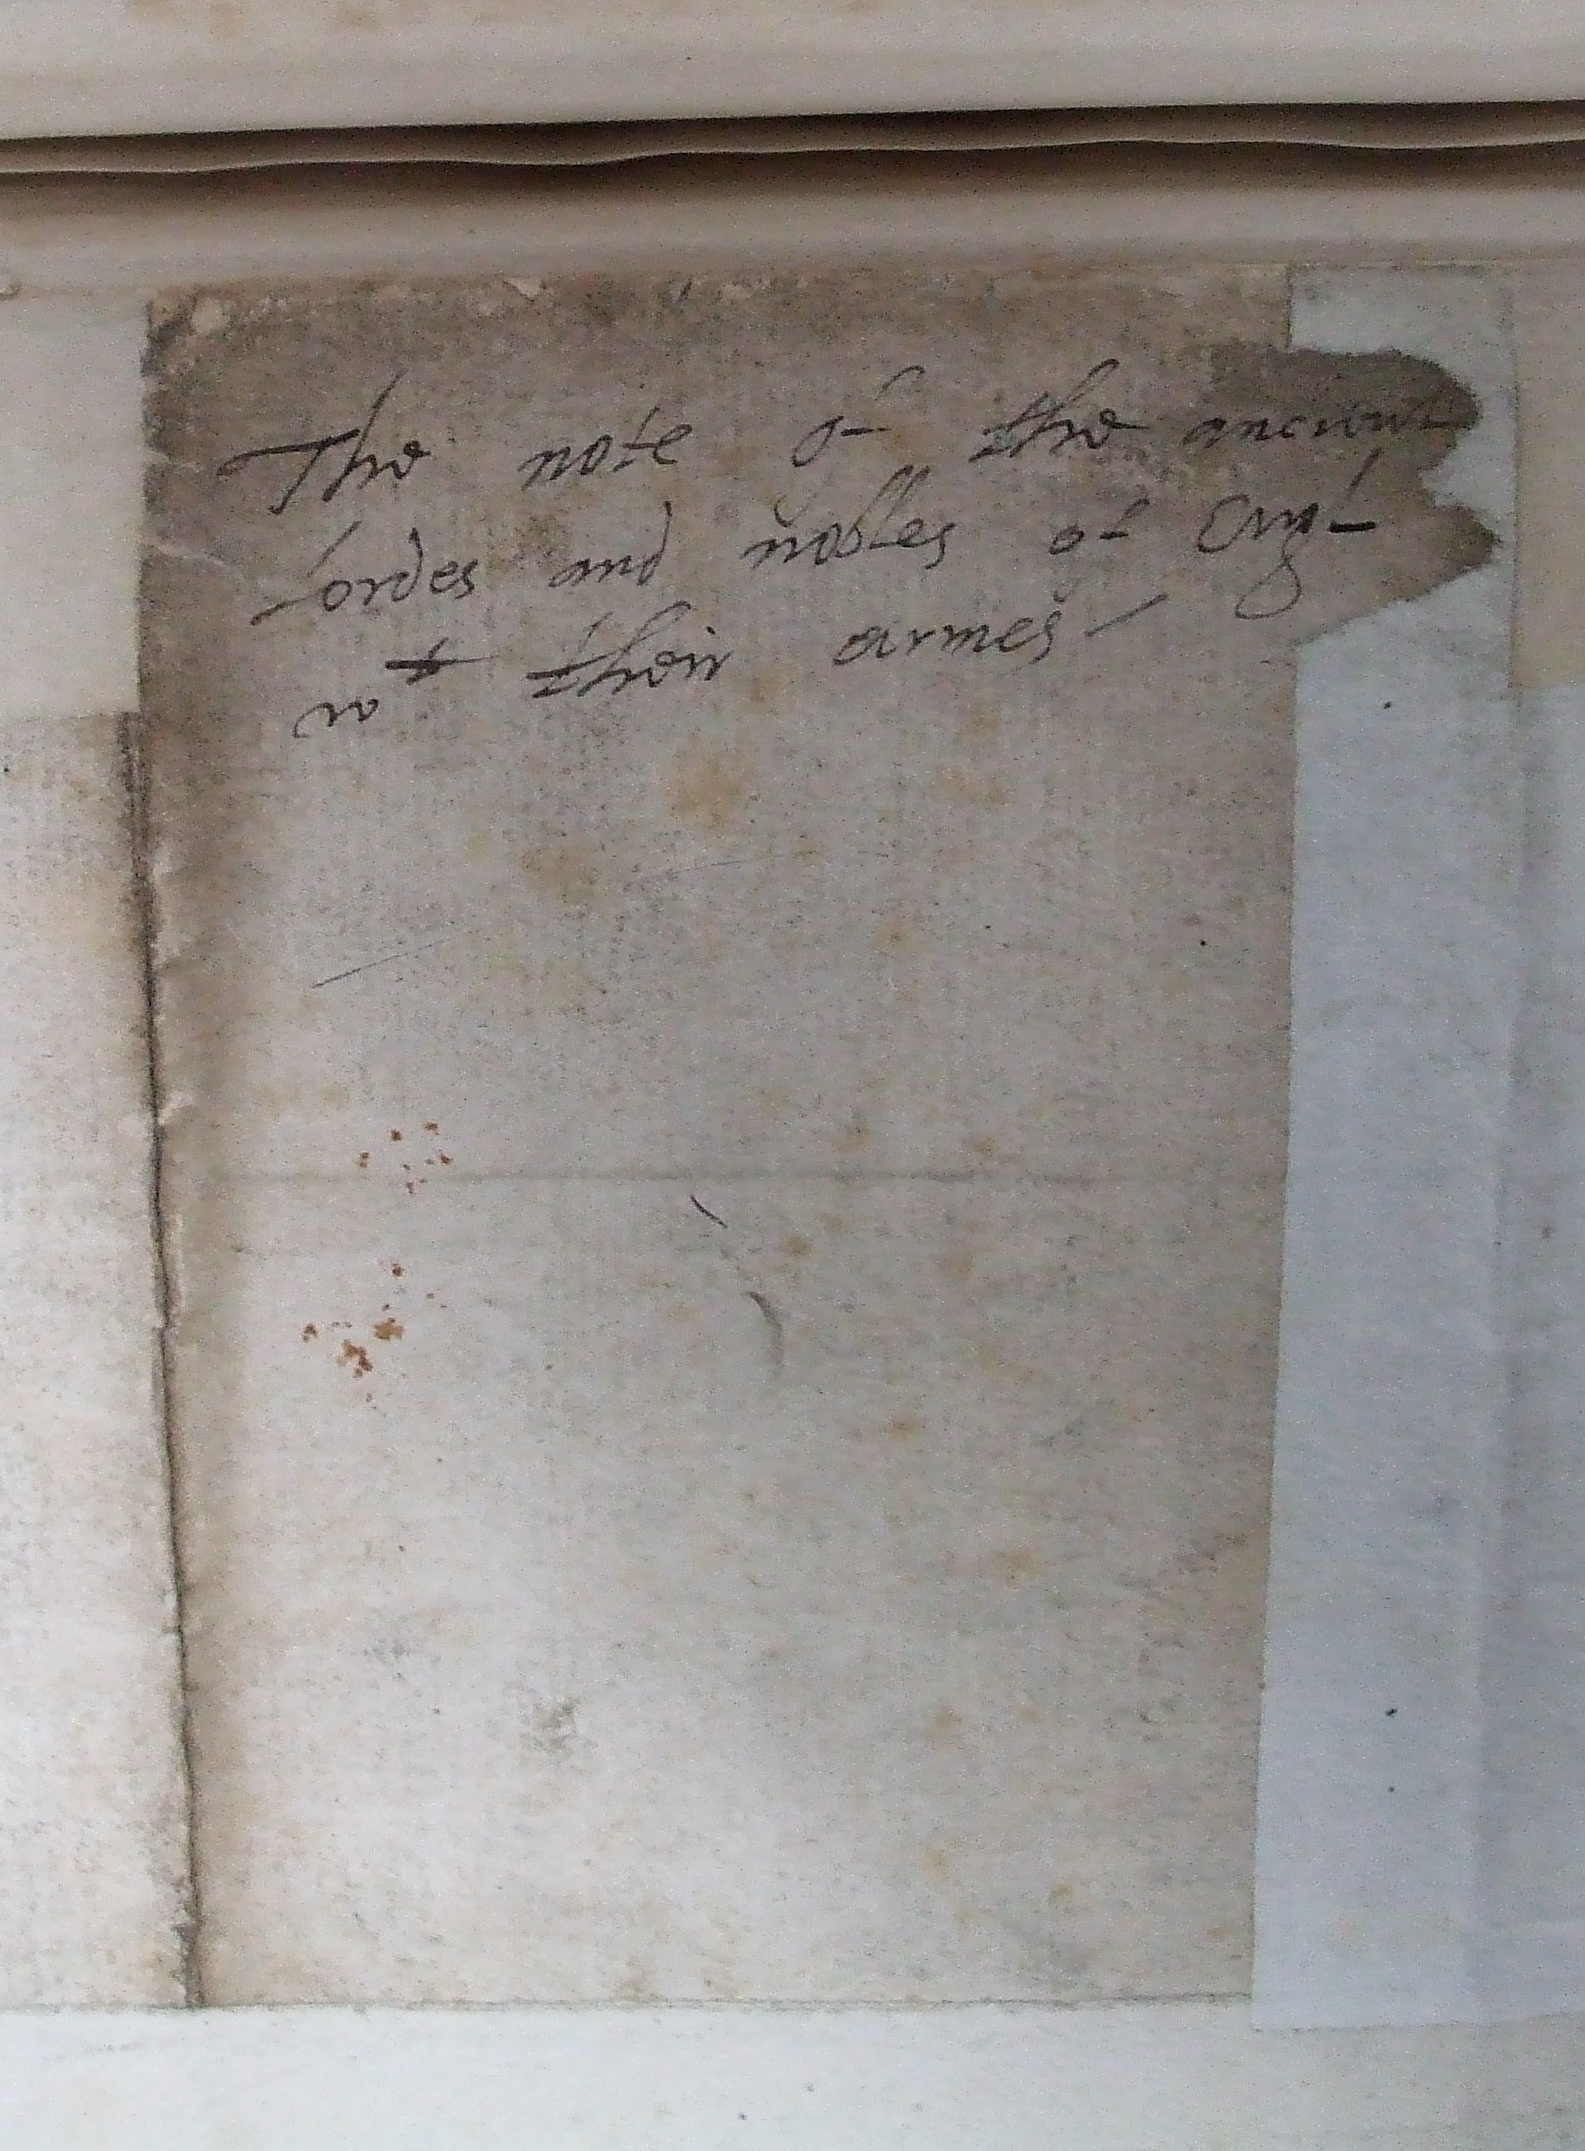 The note of the ancient
lordes and nobles of Engl
wt their armes